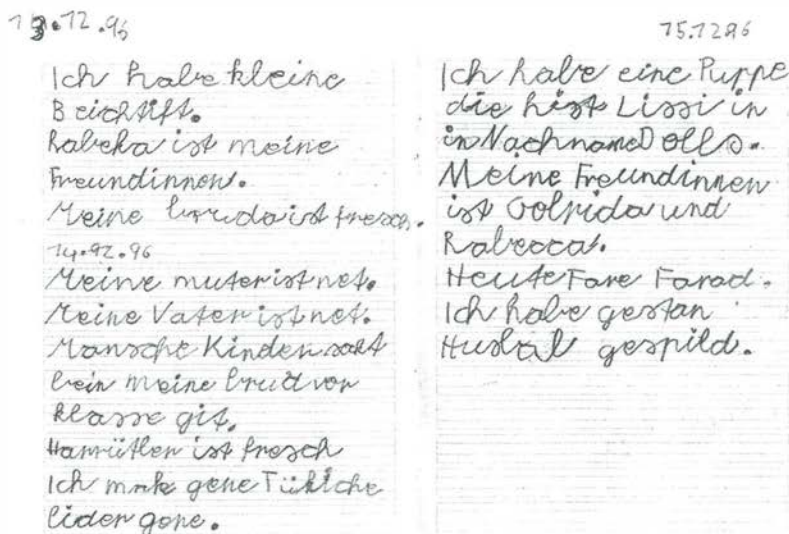 13.12.96
Ich habe kleine
Beichtift.
Rabeka ist meine
Freundinnen.
Meine bruda ist fresch.
14.12.96
Meine muter ist net.
Meine Vater ist net.
Mansche Kinder sakt
bein meine brud vor
klasse git.
ist fresch
Ich mak gene Tükiche
lider gene.
15.12.96
Ich habe eine Puppe
die hist Lissi in
in Nachname Dolls.
Meine Freundinnen
ist Golrida und
Rabecca.
Heute Fare Farad.
Ich habe gestan
Husbal gespild.